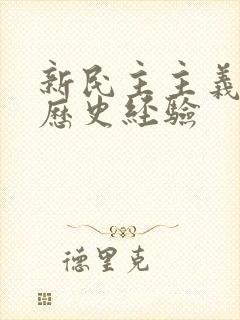 新民主主義
歷史経驗
德里克